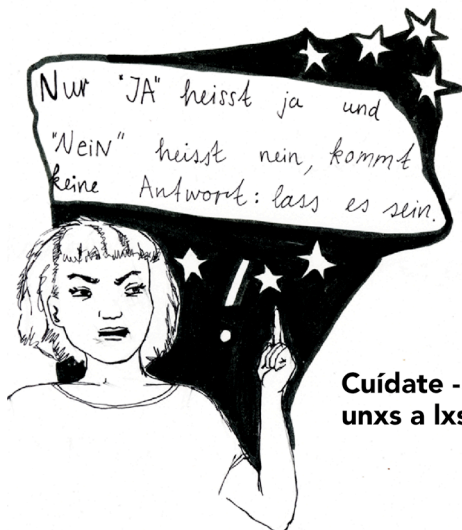 Nur "JA" heisst ja und
"NeiN" heisst nein, kommt
keine Antwort: lass es sein.
Cuídate -
unxs a lxs